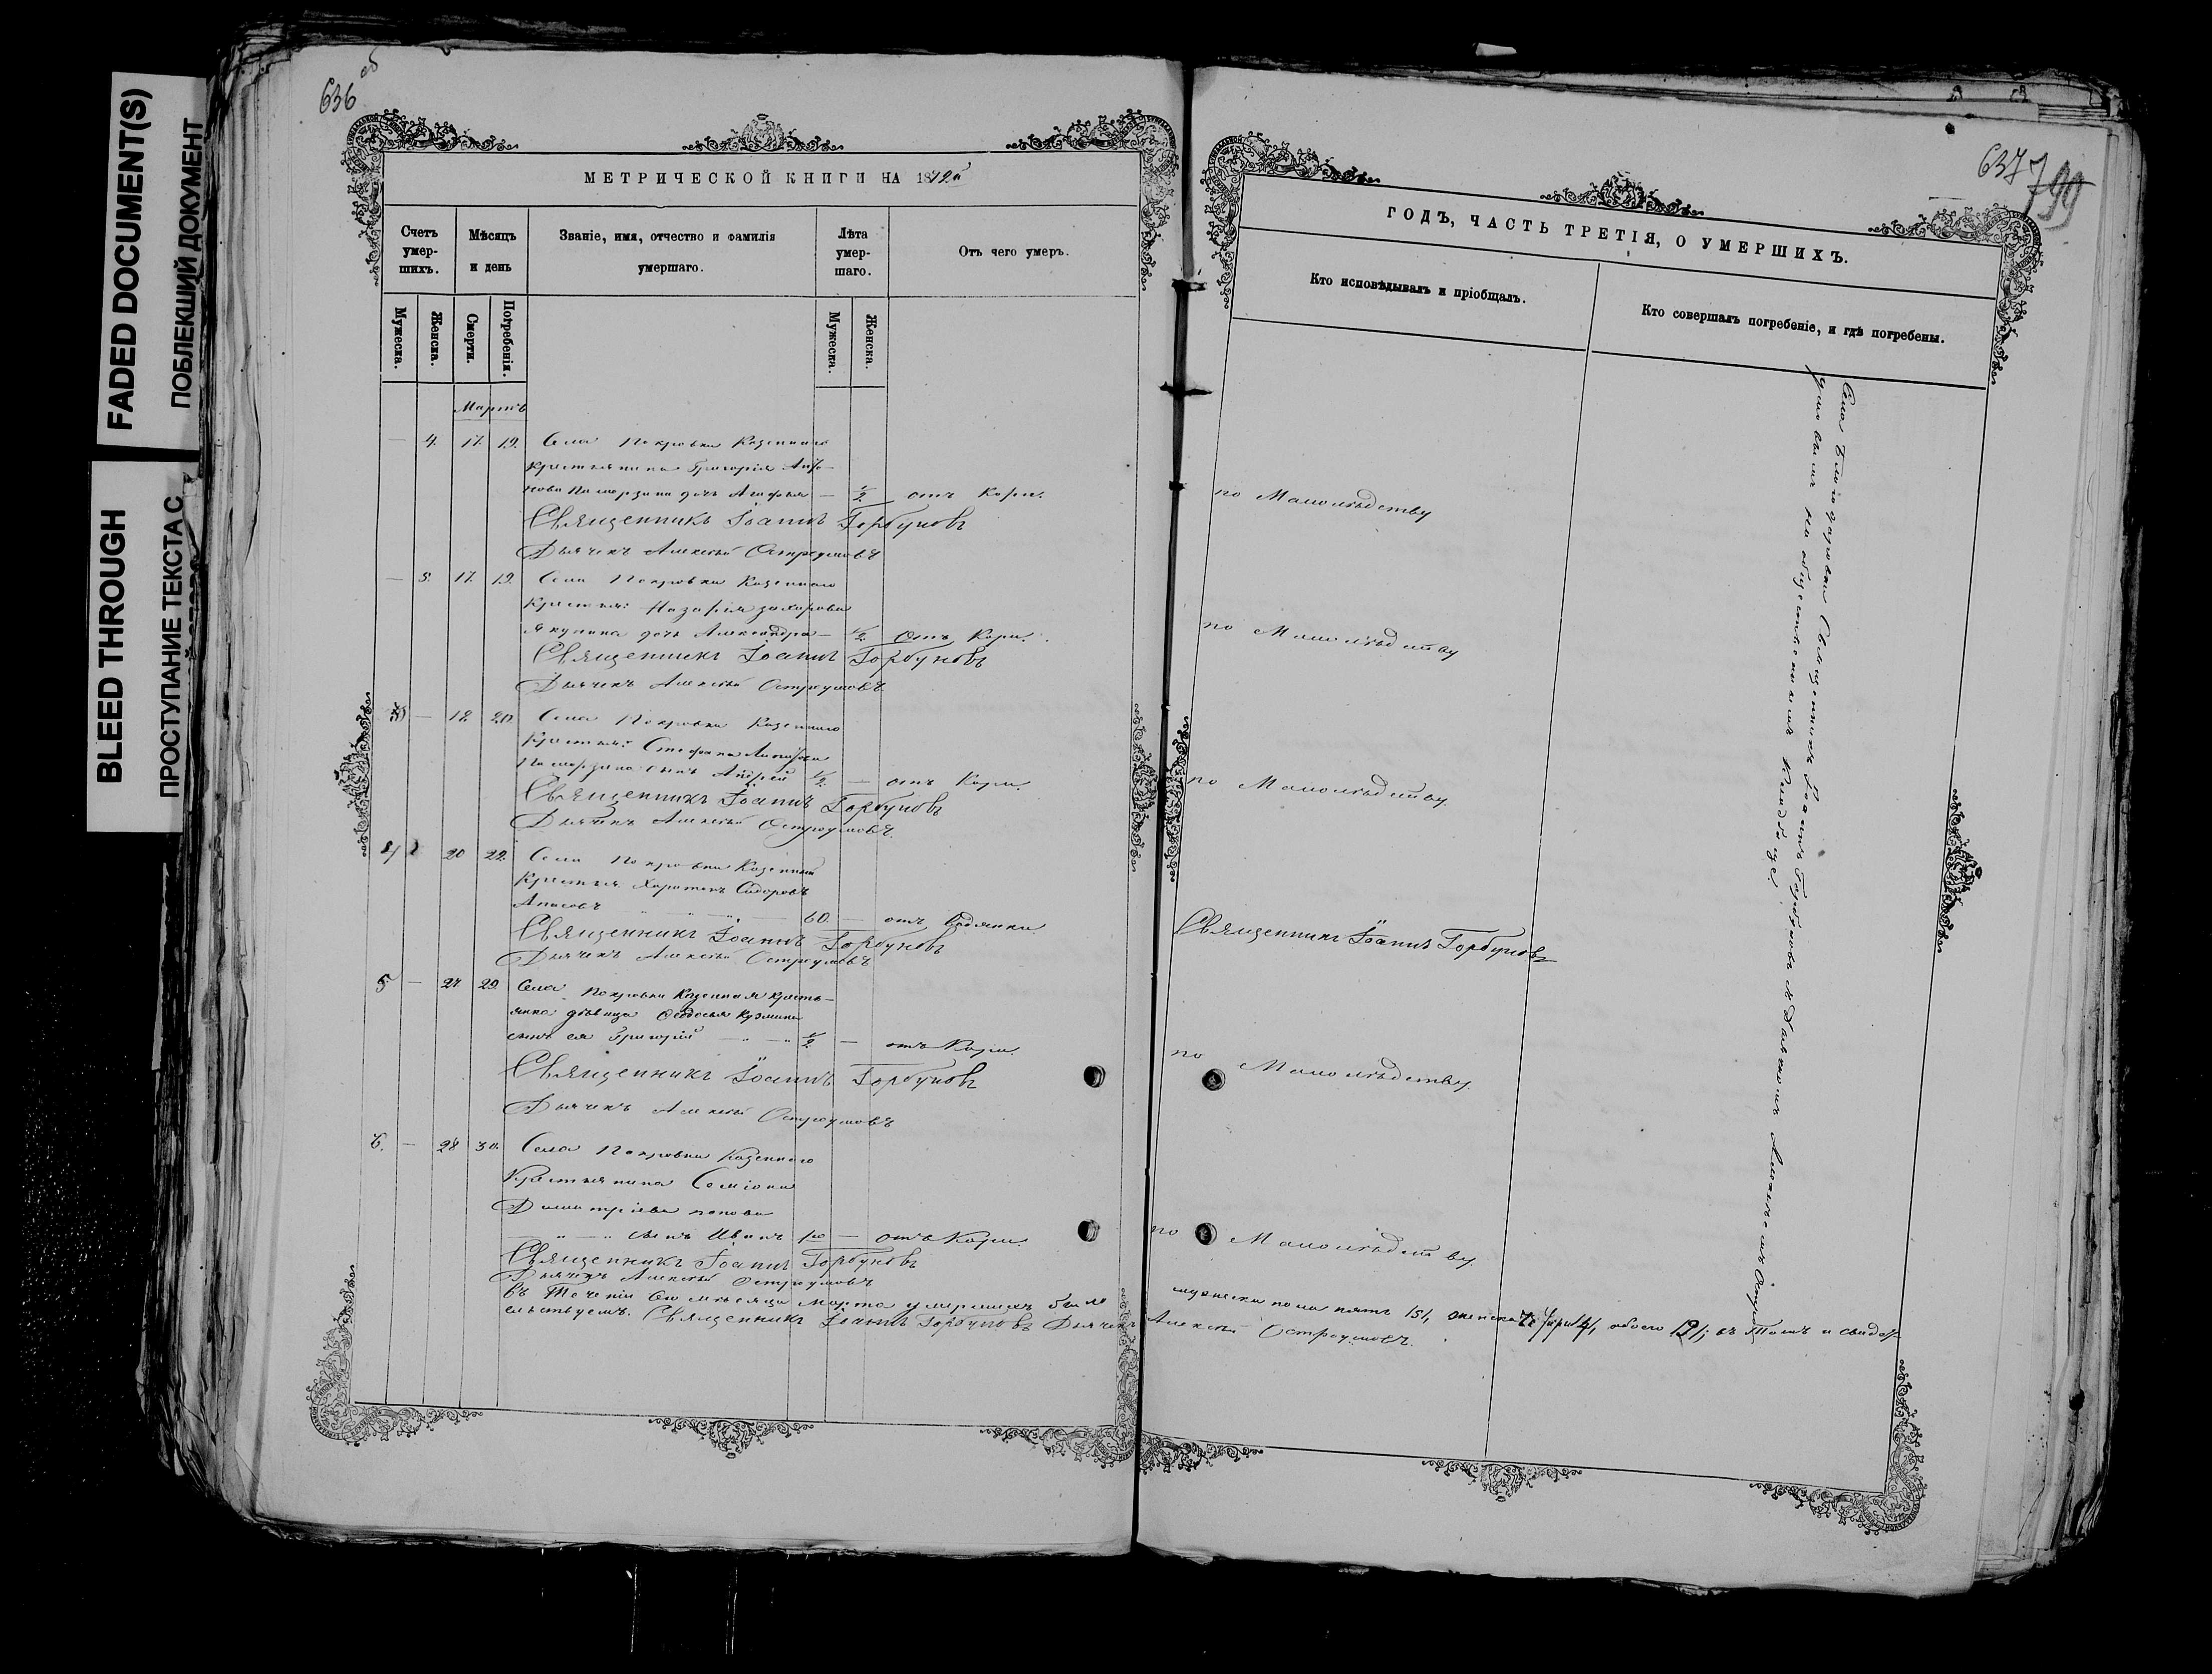 FADED DOCUMENT(S)
ПОБЛЕКШИЙ ДОКУМЕНТ
BLEED THROUGH
ПРОСТУПАНИЕ ТЕКСТА С
636 об
МЕТРИЧЕСКОЙ КНИГИ НА 1872й
Счетъ умер-шихъ.
Мѣсяцъ и день
Званіе, имя, отчество и фамилія умершаго.
Лѣта умер-шаго.
Отъ чего умеръ.
Мужеска.
Женска.
Смерти.
Погребенія.
Мужеска.
Женска.
Мартъ
— 4. 17. 19. Села Покровки Казеннаго
крестьянина Григорія
дочь Агафья — 1/2 отъ Кори.
Священникъ Іоаннъ Горбуновъ
Дьячекъ Алексѣй Остроумовъ
— 5. 17. 19. Села Покровки Казеннаго
Крестьян: Назарія Захарова
Якунина дочь Александра — 1/2 Отъ Кори.
Священникъ Іоаннъ Горбуновъ
Дьячекъ Алексѣй Остроумовъ
— 18 20. Села Покровки Казеннаго
Крестьян: Стефана
сынъ Андрей 1/2 — отъ Кори.
Священникъ Іоаннъ Горбуновъ
Дьячекъ Алексѣй Остроумовъ.
20 22. Села Покровки Казенный
Крестьян. Харитонъ Сидоровъ
60 — отъ Водянки
Священникъ Іоаннъ Горбуновъ
Дьячекъ Алексѣй Остроумовъ
5 — 27 29. Села Покровки Казенная кресть-
янка дѣвица Ѳеодосья Кузмина
сынъ ея Григорій 1/2 — отъ Кори.
Священникъ Іоаннъ Горбуновъ
Дьячекъ Алексѣй Остроумовъ
6. — 28 30. Села Покровки Казеннаго
Крестьянина Семіона
Димитріева попова
сынъ Иванъ — отъ Кори.
Священникъ Іоаннъ Горбуновъ
Дьячекъ Алексѣй Остроумовъ
въ Теченіи сего мѣсяца Марта умершихъ было
ельствуемъ. Священникъ Іоаннъ Горбуновъ Дьячекъ
637
799
ГОДЪ, ЧАСТЬ ТРЕТІЯ, О УМЕРШИХЪ.
Кто исповѣдывалъ и пріобщалъ.
Кто совершалъ погребеніе, и гдѣ погребены.
по Малолѣдству
по Малолѣдству
по Малолѣдству.
Священникъ Іоаннъ Горбуновъ
по Малолѣдству.
по Малолѣдству
мужеска пола пять /5/, женска обоего въ Томъ и свидѣт-
Алексѣй Остроумовъ.
Села Священникъ Іоаннъ Горбуновъ съ Дьячкомъ Алексѣемъ
на общественномъ Кладбище.